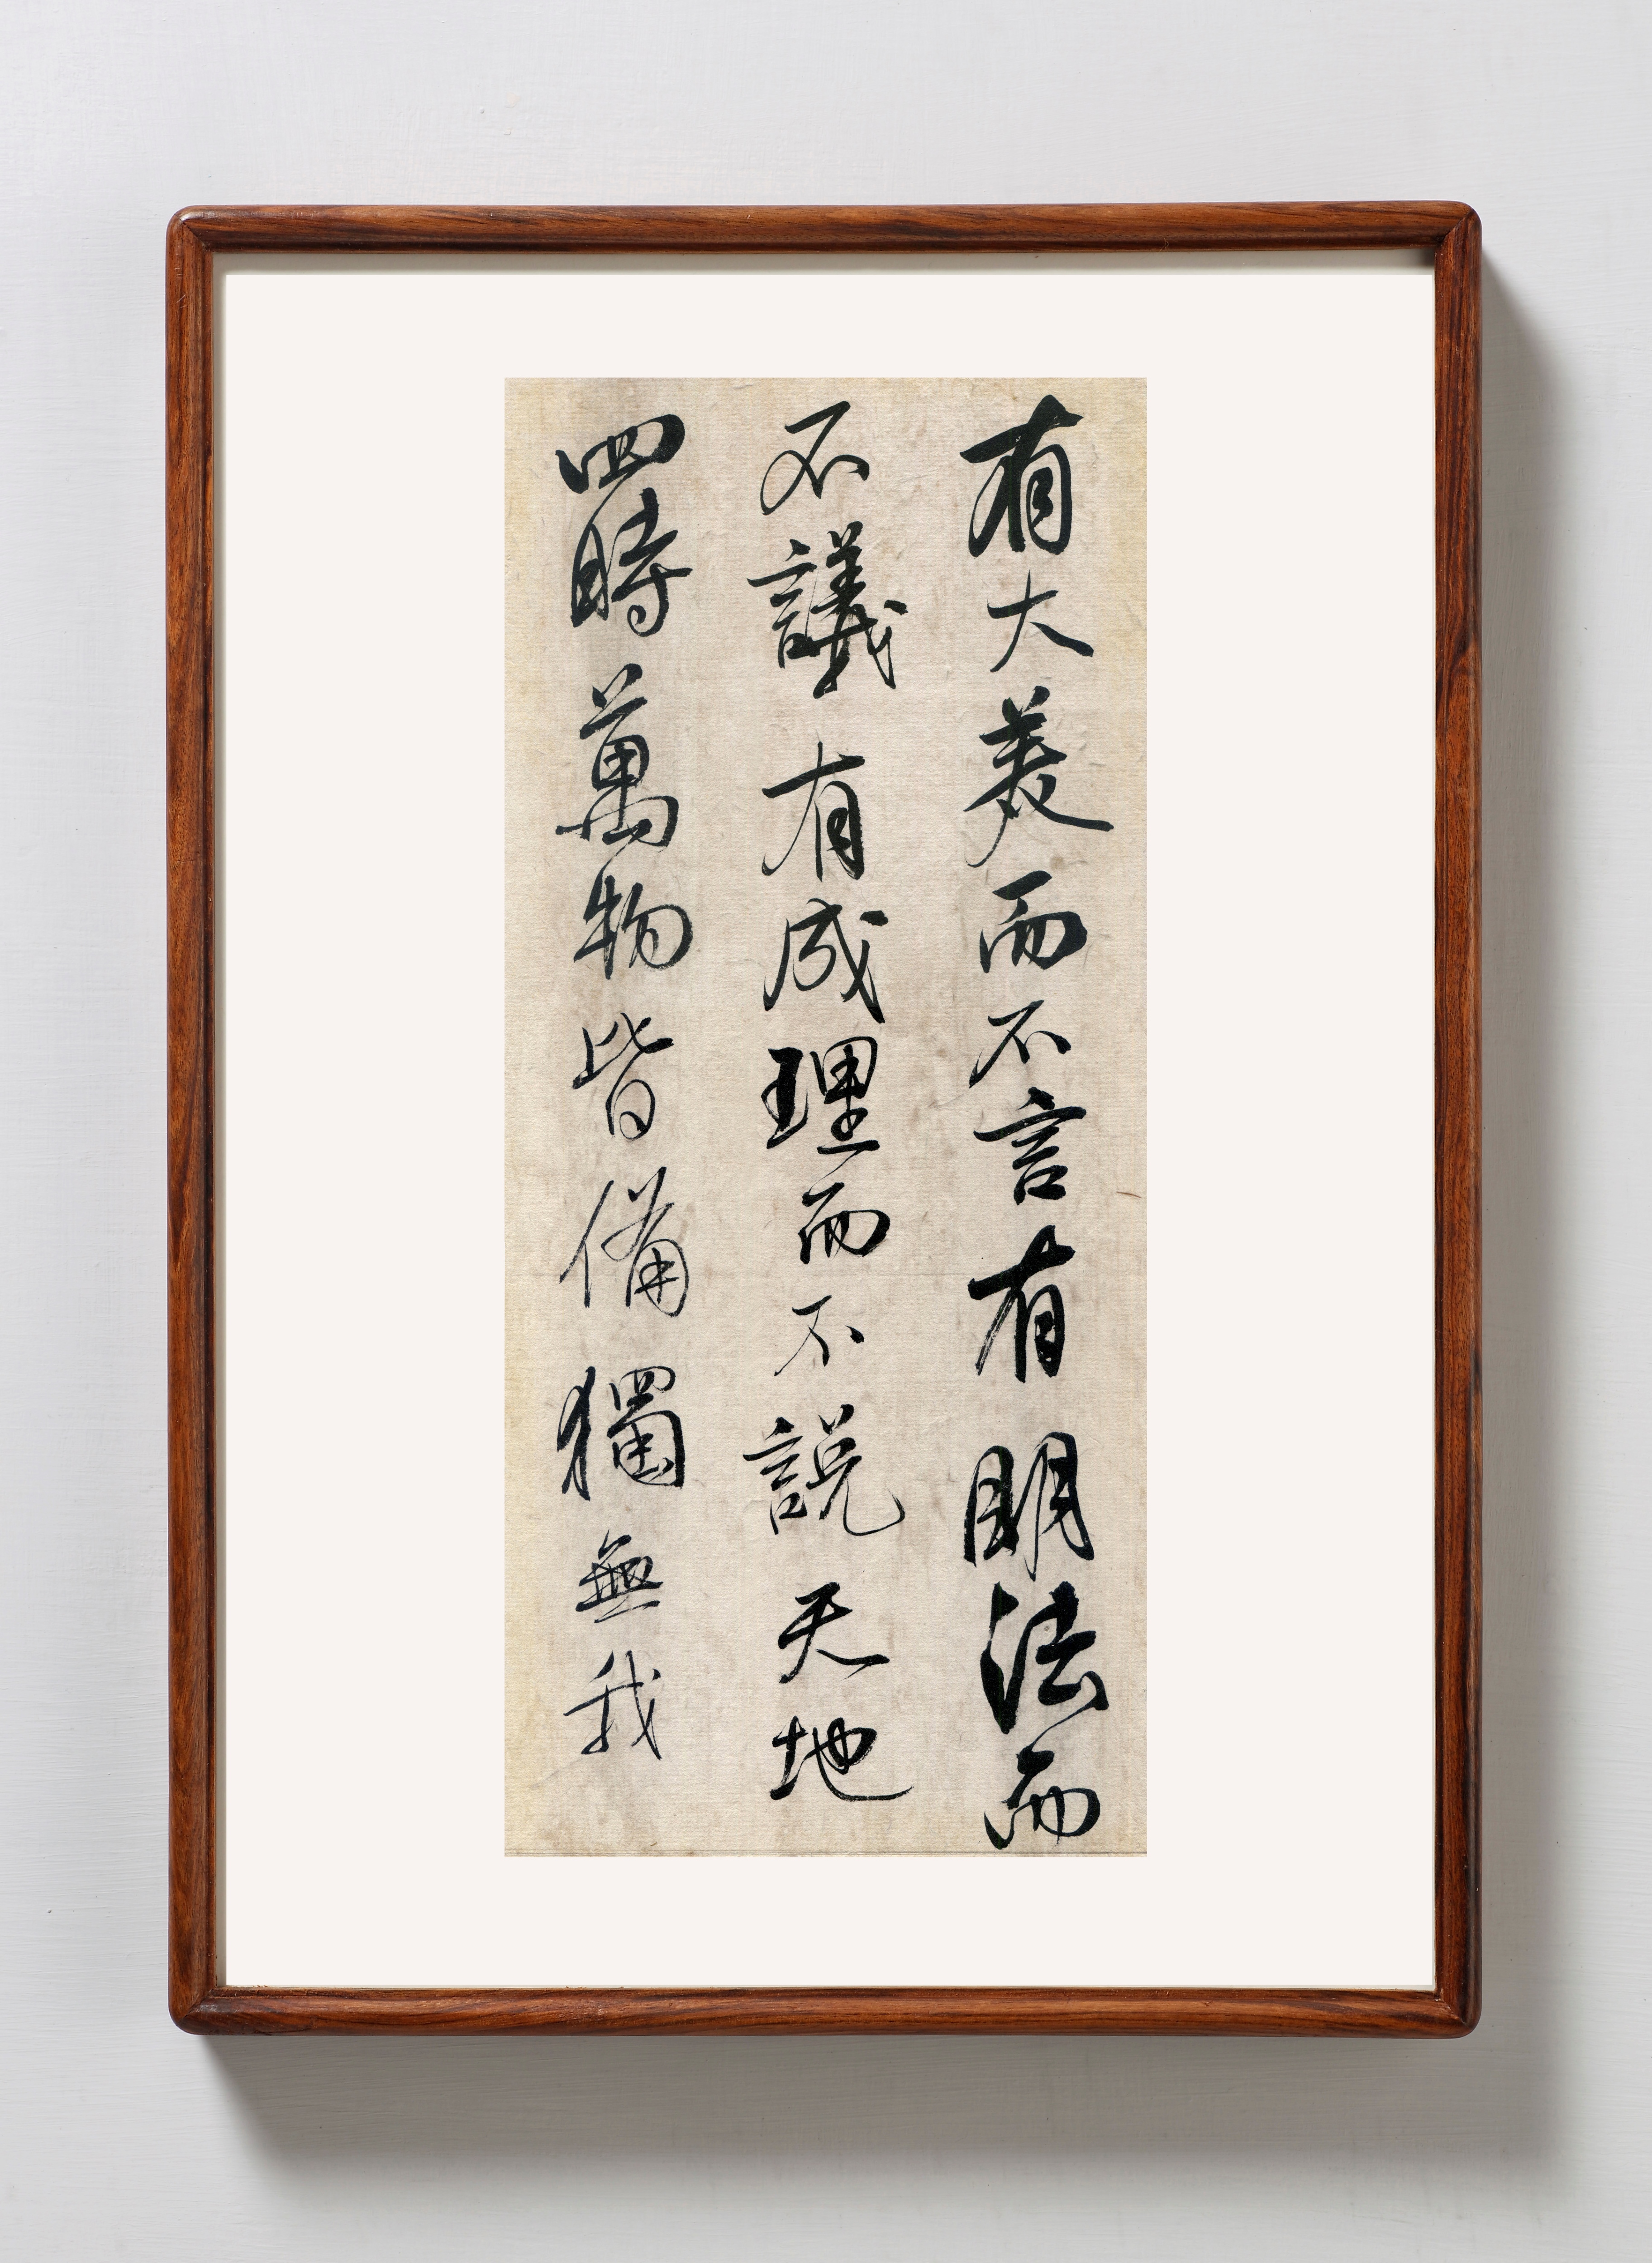 有大美而不言有明法而
不議有成理而不說天地
四時萬物皆備獨無我